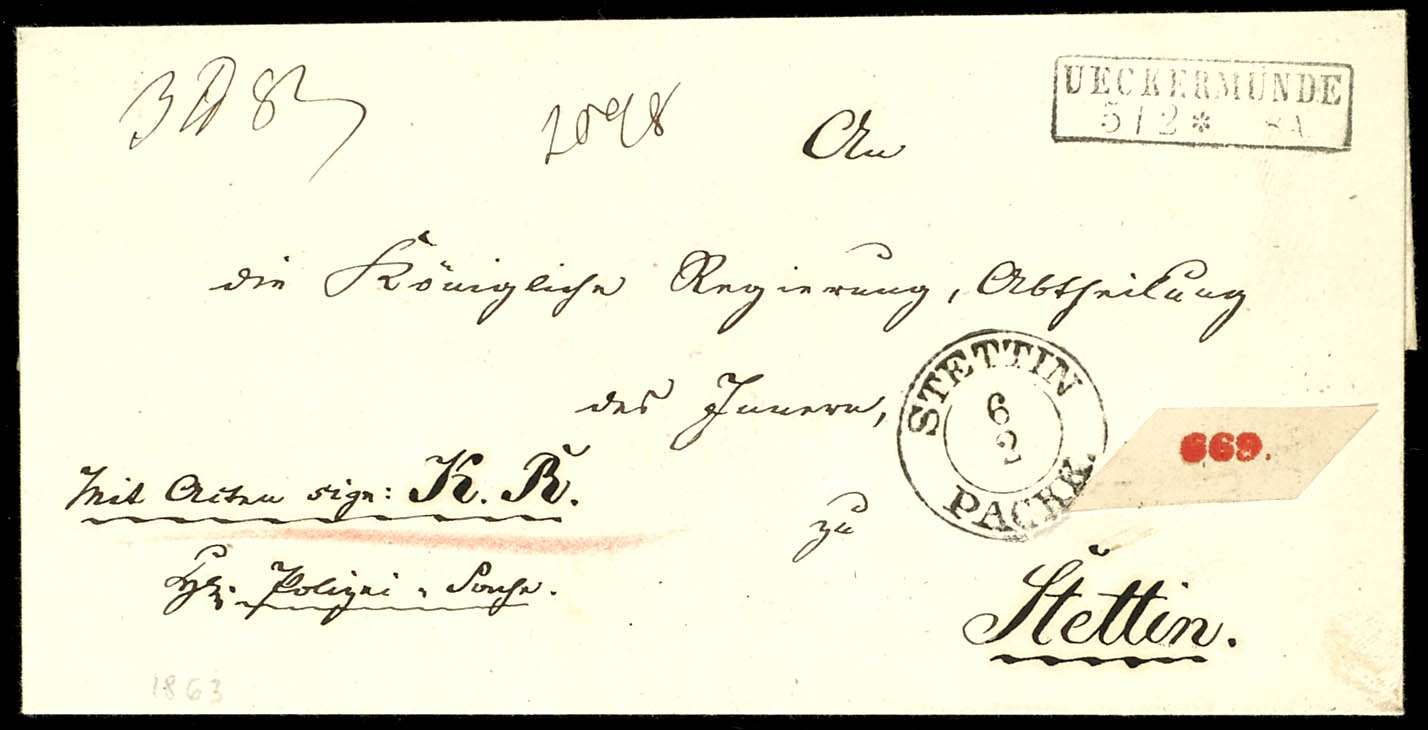 2098
An
UECKERMÜNDE
5/2 * 8 A
die Königliche Regierung, Abtheilung
des Innern,
STETTIN
6
2
PACKK.
669.
Mit Acten sign: K. R.
zu
Polizei-Sache.
Stettin.
1863